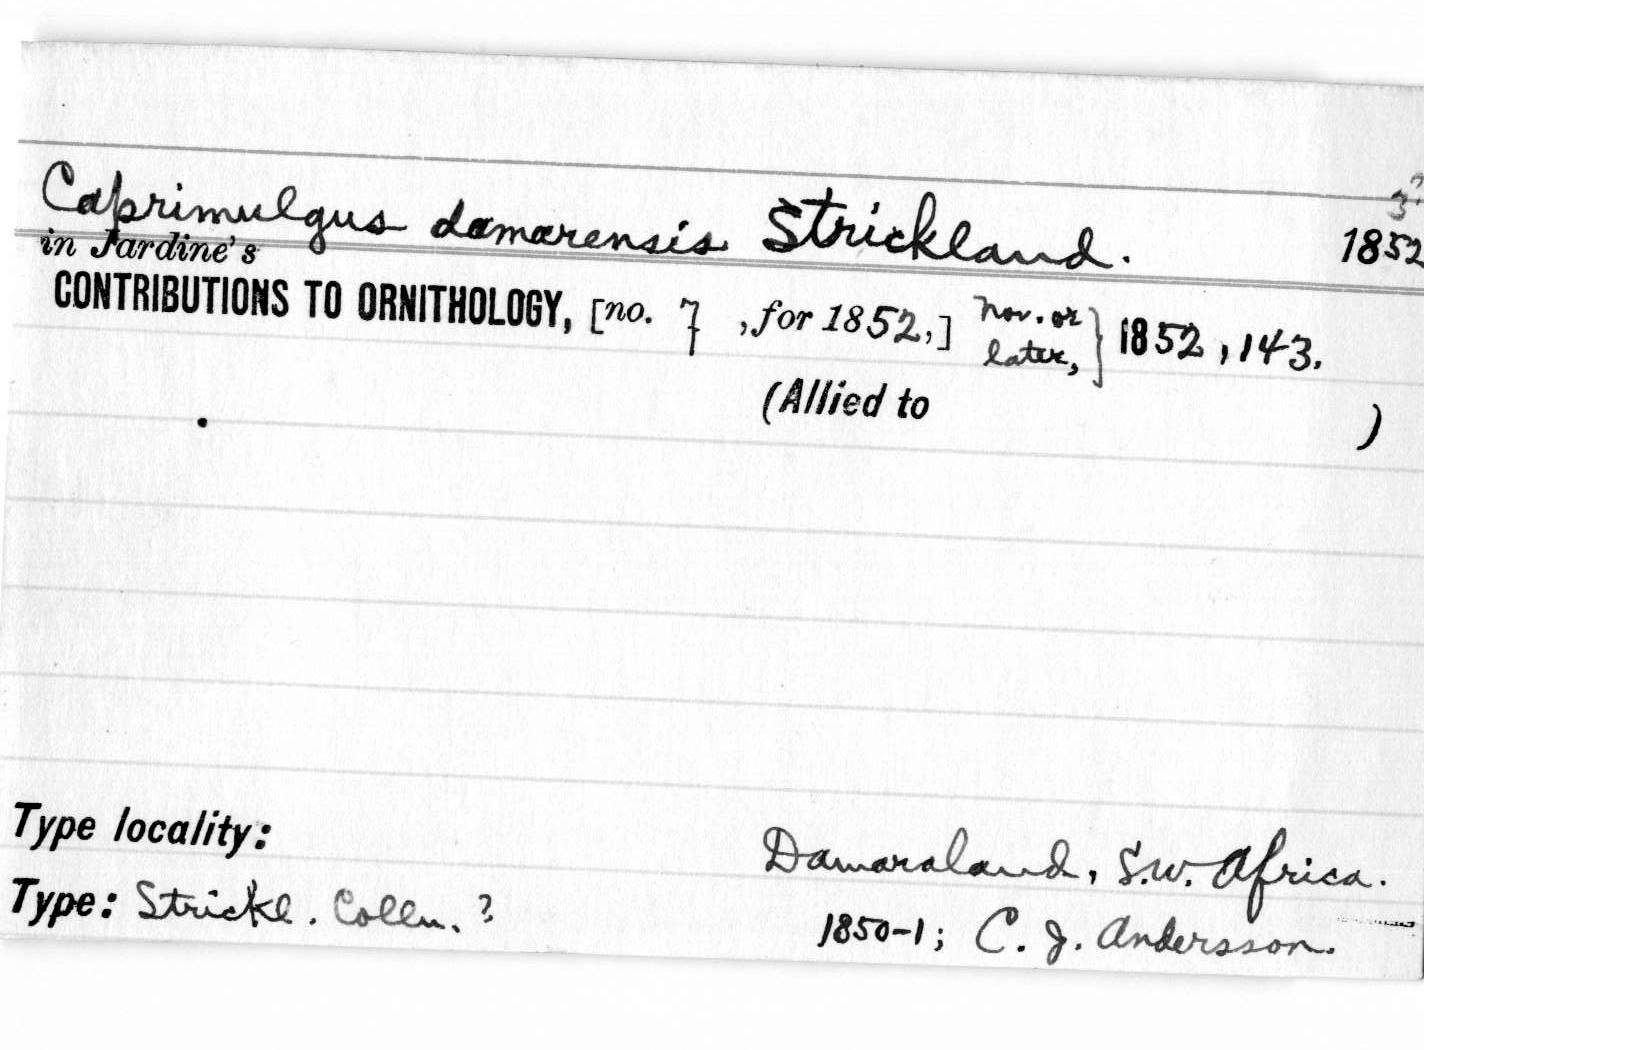 3?
Caprimulgus damarensis Strickland. 1852
in Jardine's
CONTRIBUTIONS TO ORNITHOLOGY, [no. 7, for 1852,] Nov. or later,} 1852, 143.
(Allied to )
Type locality: Damaraland, S.W. Africa.
Type: Strickl. Colln. ? 1850-1; C. J. Andersson.